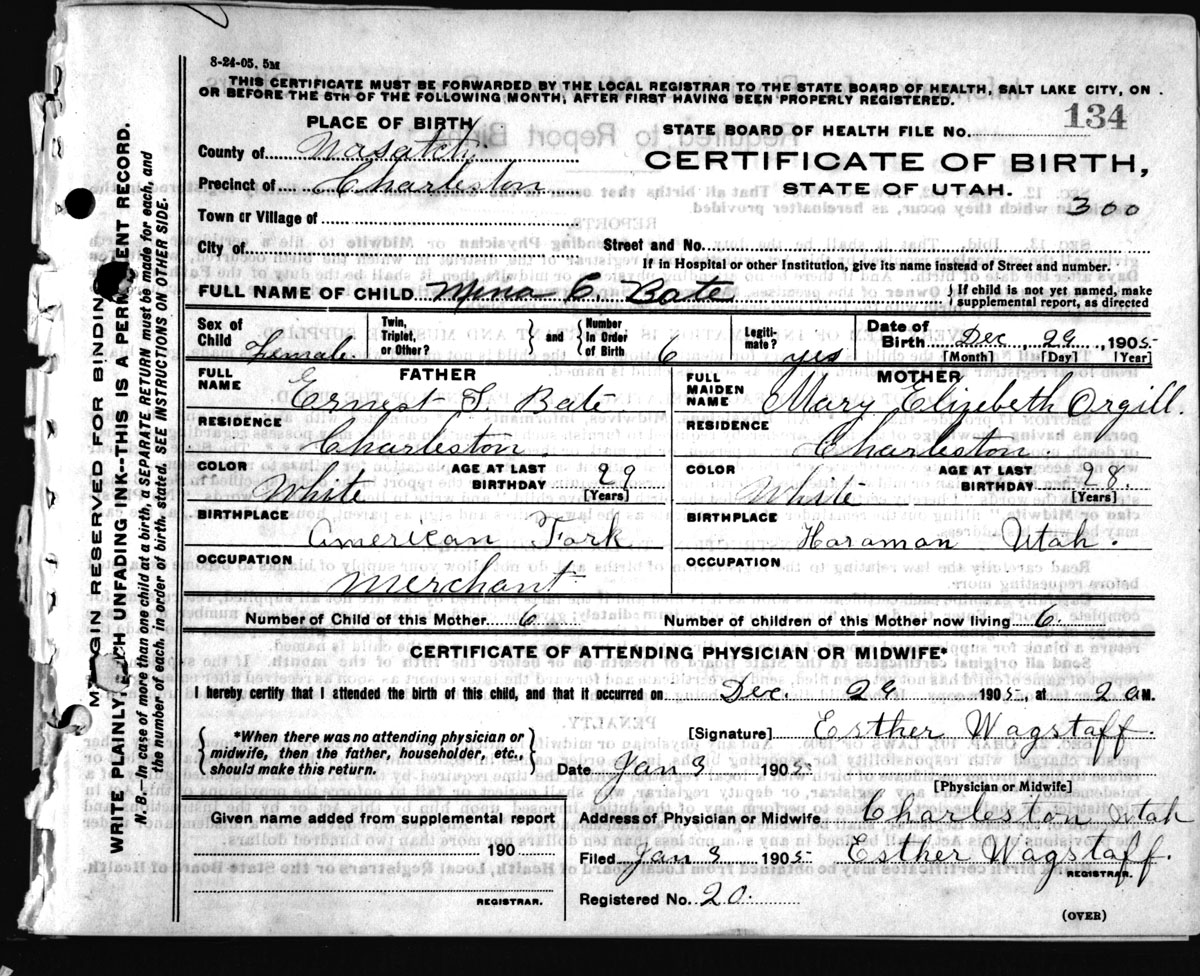 8-24-05. 5M
THIS CERTIFICATE MUST BE FORWARDED BY THE LOCAL REGISTRAR TO THE STATE BOARD OF HEALTH, SALT LAKE CITY, ON
OR BEFORE THE 5TH OF THE FOLLOWING MONTH, AFTER FIRST HAVING BEEN PROPERLY REGISTERED.
134
PLACE OF BIRTH
STATE BOARD OF HEALTH FILE No.
County of Wasatch
CERTIFICATE OF BIRTH,
Precinct of Charleston
STATE OF UTAH.
300
Town or Village of
City of Street and No.
If in Hospital or other Institution, give its name instead of Street and number.
FULL NAME OF CHILD Mina C. Bate } If child is not yet named, make supplemental report, as directed
Sex of Child Female
Twin, Triplet, or Other? } and { Number in Order of Birth 6
Legitimate? yes
Date of Birth Dec 29, 1905
[Month] [Day] [Year]
FATHER
FULL NAME Ernest S. Bate
RESIDENCE Charleston.
COLOR White AGE AT LAST BIRTHDAY 29 [Years]
BIRTHPLACE American Fork
OCCUPATION Merchant
MOTHER
FULL MAIDEN NAME Mary Elizebeth Orgill.
RESIDENCE Charleston.
COLOR White AGE AT LAST BIRTHDAY 28. [Years]
BIRTHPLACE Haraman Utah.
OCCUPATION
Number of Child of this Mother 6 Number of children of this Mother now living 6.
CERTIFICATE OF ATTENDING PHYSICIAN OR MIDWIFE*
I hereby certify that I attended the birth of this child, and that it occurred on Dec. 29 1905, at 2 a M.
{ *When there was no attending physician or midwife, then the father, householder, etc., should make this return. }
[Signature] Esther Wagstaff.
Date Jan 3 1905
[Physician or Midwife]
Given name added from supplemental report
190
REGISTRAR.
Address of Physician or Midwife Charleston Utah
Filed Jan 3 1905 Esther Wagstaff.
REGISTRAR.
Registered No. 20.
(OVER)
MARGIN RESERVED FOR BINDING
WRITE PLAINLY, WITH UNFADING INK--THIS IS A PERMANENT RECORD.
N. B.--In case of more than one child at a birth, a SEPARATE RETURN must be made for each, and
the number of each, in order of birth, stated. SEE INSTRUCTIONS ON OTHER SIDE.